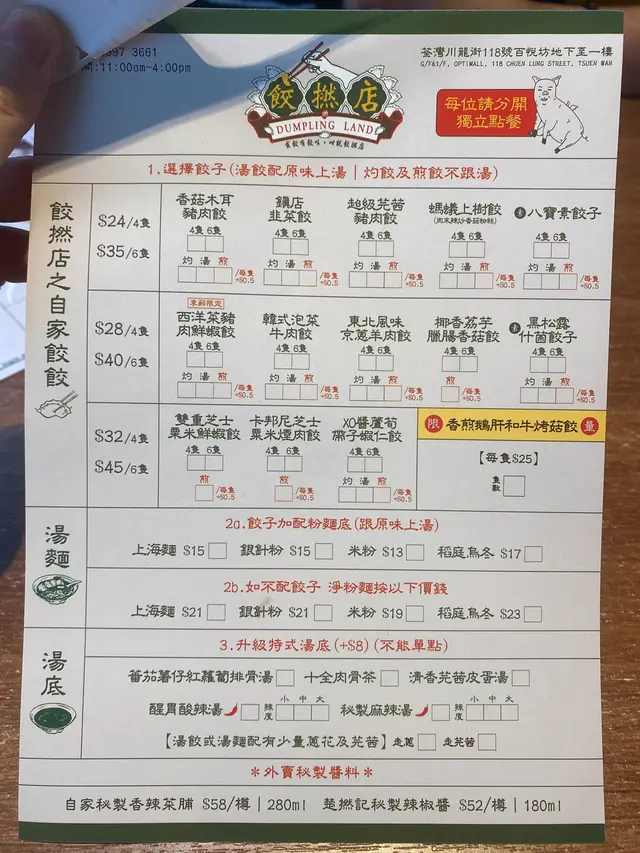 597 3661
11:00am-4:00pm
荃灣川龍街118號百悅坊地下至一樓
G/F&1/F, OPTIMALL, 118 CHUEN LUNG STREET, TSUEN WAN
餃撚店
DUMPLING LAND
每位請分開
獨立點餐
1.選擇餃子(湯餃配原味上湯|灼餃及煎餃不跟湯)
餃撚店之自家餃餃
$24/4隻
$35/6隻
香菇木耳
豬肉餃
4隻 6隻
灼 湯 煎
/每隻
+$0.5
鎮店
韭菜餃
4隻 6隻
灼 湯 煎
/每隻
+$0.5
超級芫茜
豬肉餃
4隻 6隻
灼 湯 煎
/每隻
+$0.5
螞蟻上樹餃
(肉末辣炒香菇粉絲)
4隻 6隻
灼 湯 煎
/每隻
+$0.5
素 八寶素餃子
4隻 6隻
灼 湯 煎
/每隻
+$0.5
$28/4隻
$40/6隻
季節限定
西洋菜豬
肉鮮蝦餃
4隻 6隻
灼 湯 煎
/每隻
+$0.5
韓式泡菜
牛肉餃
4隻 6隻
灼 湯 煎
/每隻
+$0.5
東北風味
京蔥羊肉餃
4隻 6隻
灼 湯 煎
/每隻
+$0.5
椰香荔芋
臘腸香菇餃
4隻 6隻
煎
/每隻
+$0.5
素 黑松露
什菌餃子
4隻 6隻
灼 湯 煎
/每隻
+$0.5
$32/4隻
$45/6隻
雙重芝士
粟米鮮蝦餃
4隻 6隻
煎
/每隻
+$0.5
卡邦尼芝士
粟米煙肉餃
4隻 6隻
煎
/每隻
+$0.5
XO醬蘆筍
帶子蝦仁餃
4隻 6隻
灼 湯 煎
/每隻
+$0.5
限 香煎鵝肝和牛烤菇餃 量
【每隻$25】
隻數
湯麵
2a.餃子加配粉麵底(跟原味上湯)
上海麵 $15 銀針粉 $15 米粉 $13 稻庭烏冬 $17
2b.如不配餃子 淨粉麵按以下價錢
上海麵 $21 銀針粉 $21 米粉 $19 稻庭烏冬 $23
湯底
3.升級特式湯底(+$8)(不能單點)
蕃茄薯仔紅蘿蔔排骨湯 十全肉骨茶 清香芫茜皮蛋湯
醒胃酸辣湯 辣度 小 中 大 秘製麻辣湯 辣度 小 中 大
【湯餃或湯麵配有少量蔥花及芫茜】 走蔥 走芫茜
*外賣秘製醬料*
自家秘製香辣菜脯 $58/樽|280ml 楚撚記秘製辣椒醬 $52/樽|180ml